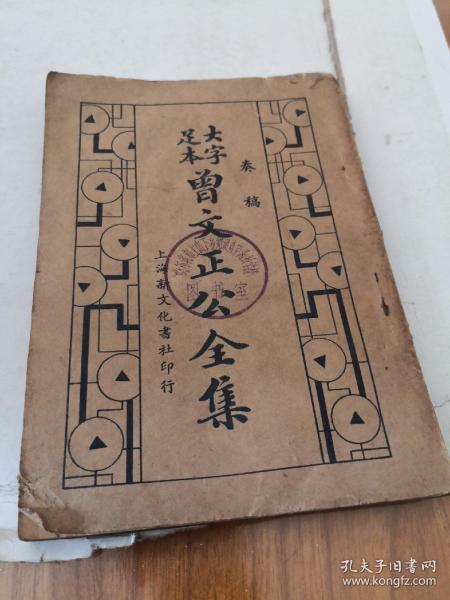 奏稿
大字
足本
曾文正公全集
上海新文化書社印行
图书室
孔夫子旧书网
www.kongfz.com